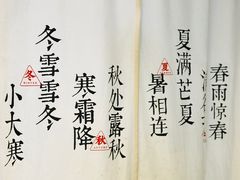 春雨惊春
夏满芒夏
夏
暑相连
秋处露秋
秋
寒霜降
冬雪雪冬
冬
小大寒